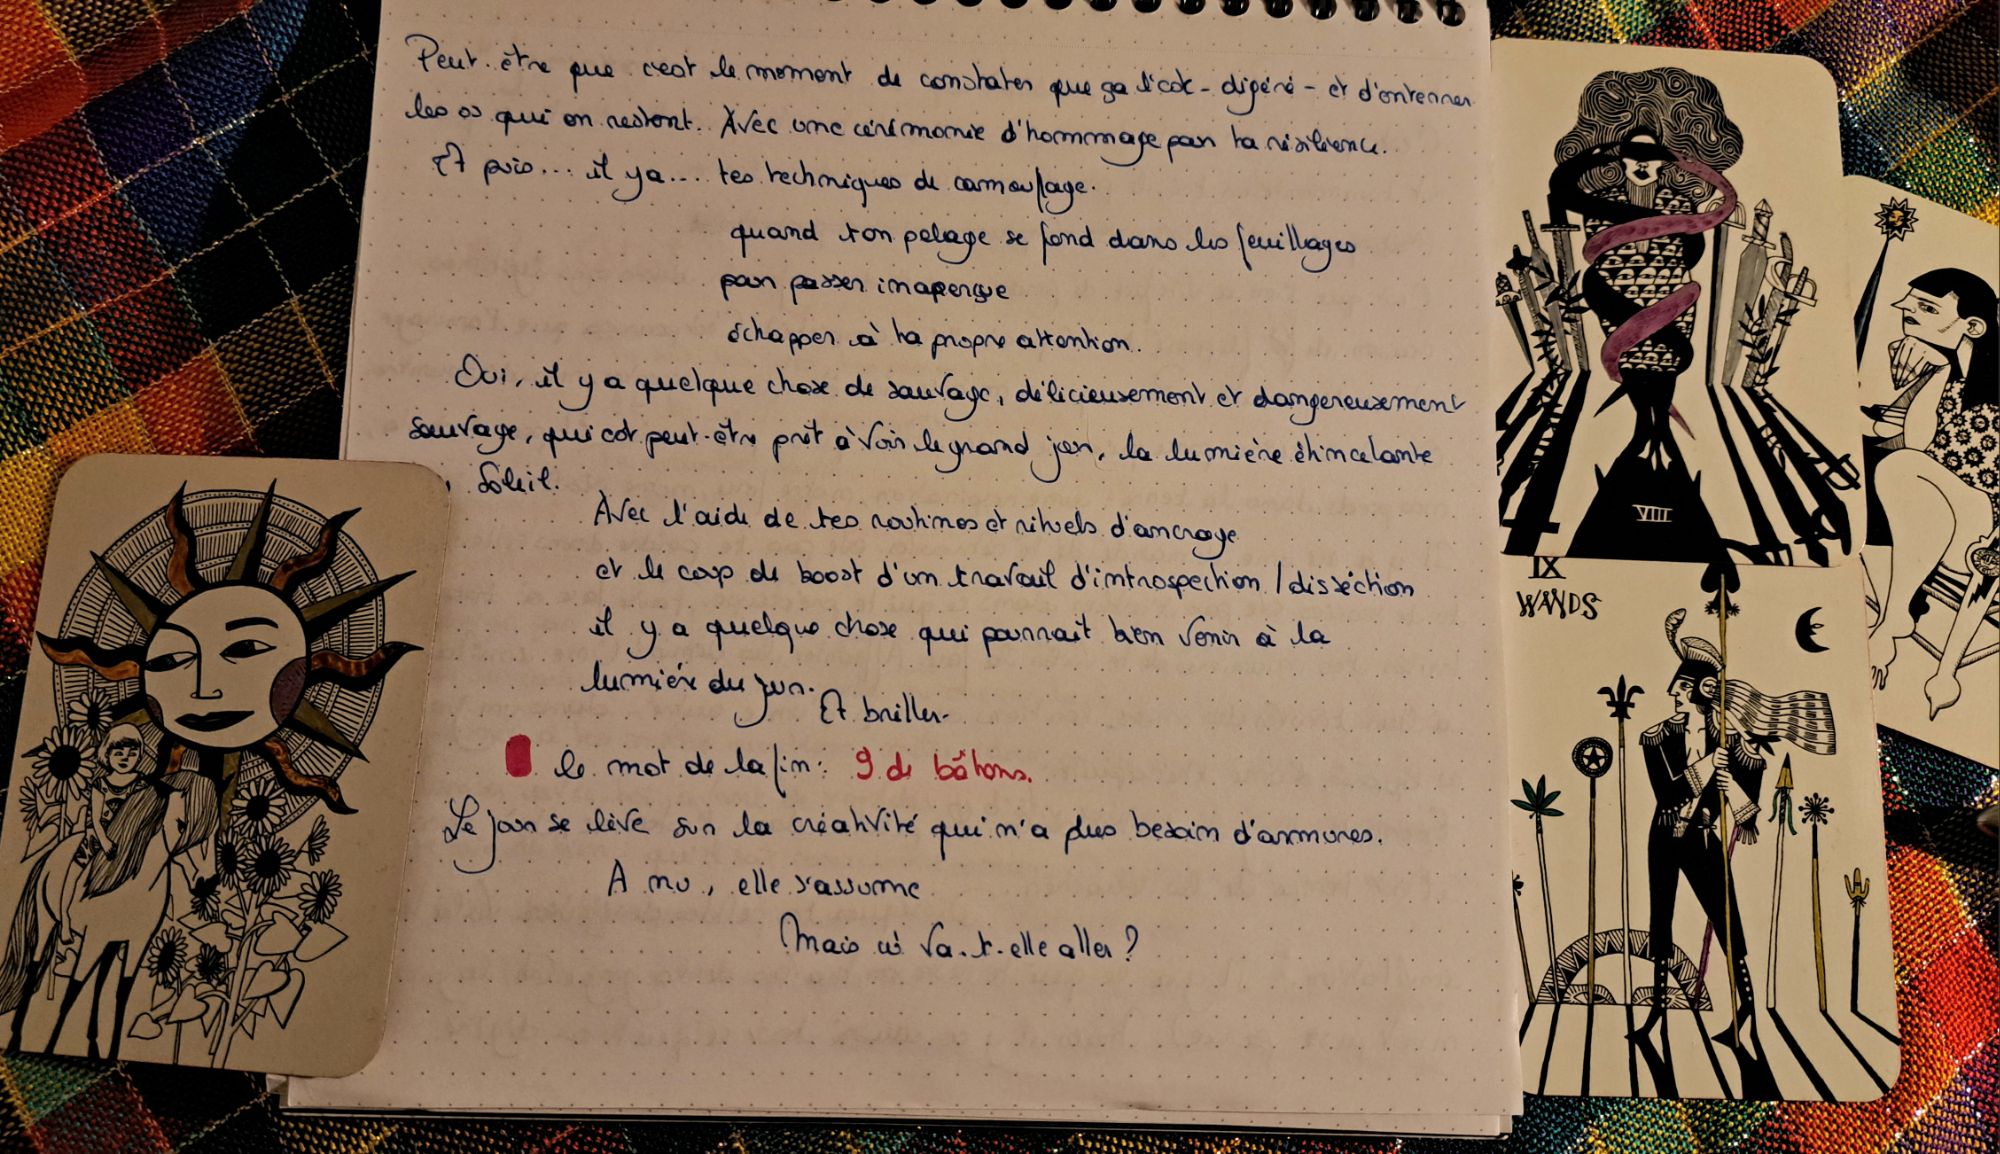 Peut-être que c'est le moment de constater que ça l'est - digéré - et d'enterrer
les os qui en restent. Avec une cérémonie d'hommage pour ta résilience.
Et puis... il y a.... tes techniques de camouflage.
quand ton pelage se fond dans les feuillages
pour passer inaperçue
échapper à ta propre attention.
Oui, il y a quelque chose de sauvage, délicieusement et dangereusement
sauvage, qui est peut-être prêt à voir le grand jour, la lumière étincelante
Soleil.
Avec l'aide de tes routines et rituels d'ancrage
et le coup de boost d'un travail d'introspection / disséction
il y a quelque chose qui pourrait bien venir à la
lumière du jour.
Et briller.
le mot de la fin : 9 de bâtons.
Le jour se lève sur la créativité qui n'a plus besoin d'armures.
A nu, elle s'assume
Mais où va-t-elle aller ?
VIII
IX
WANDS